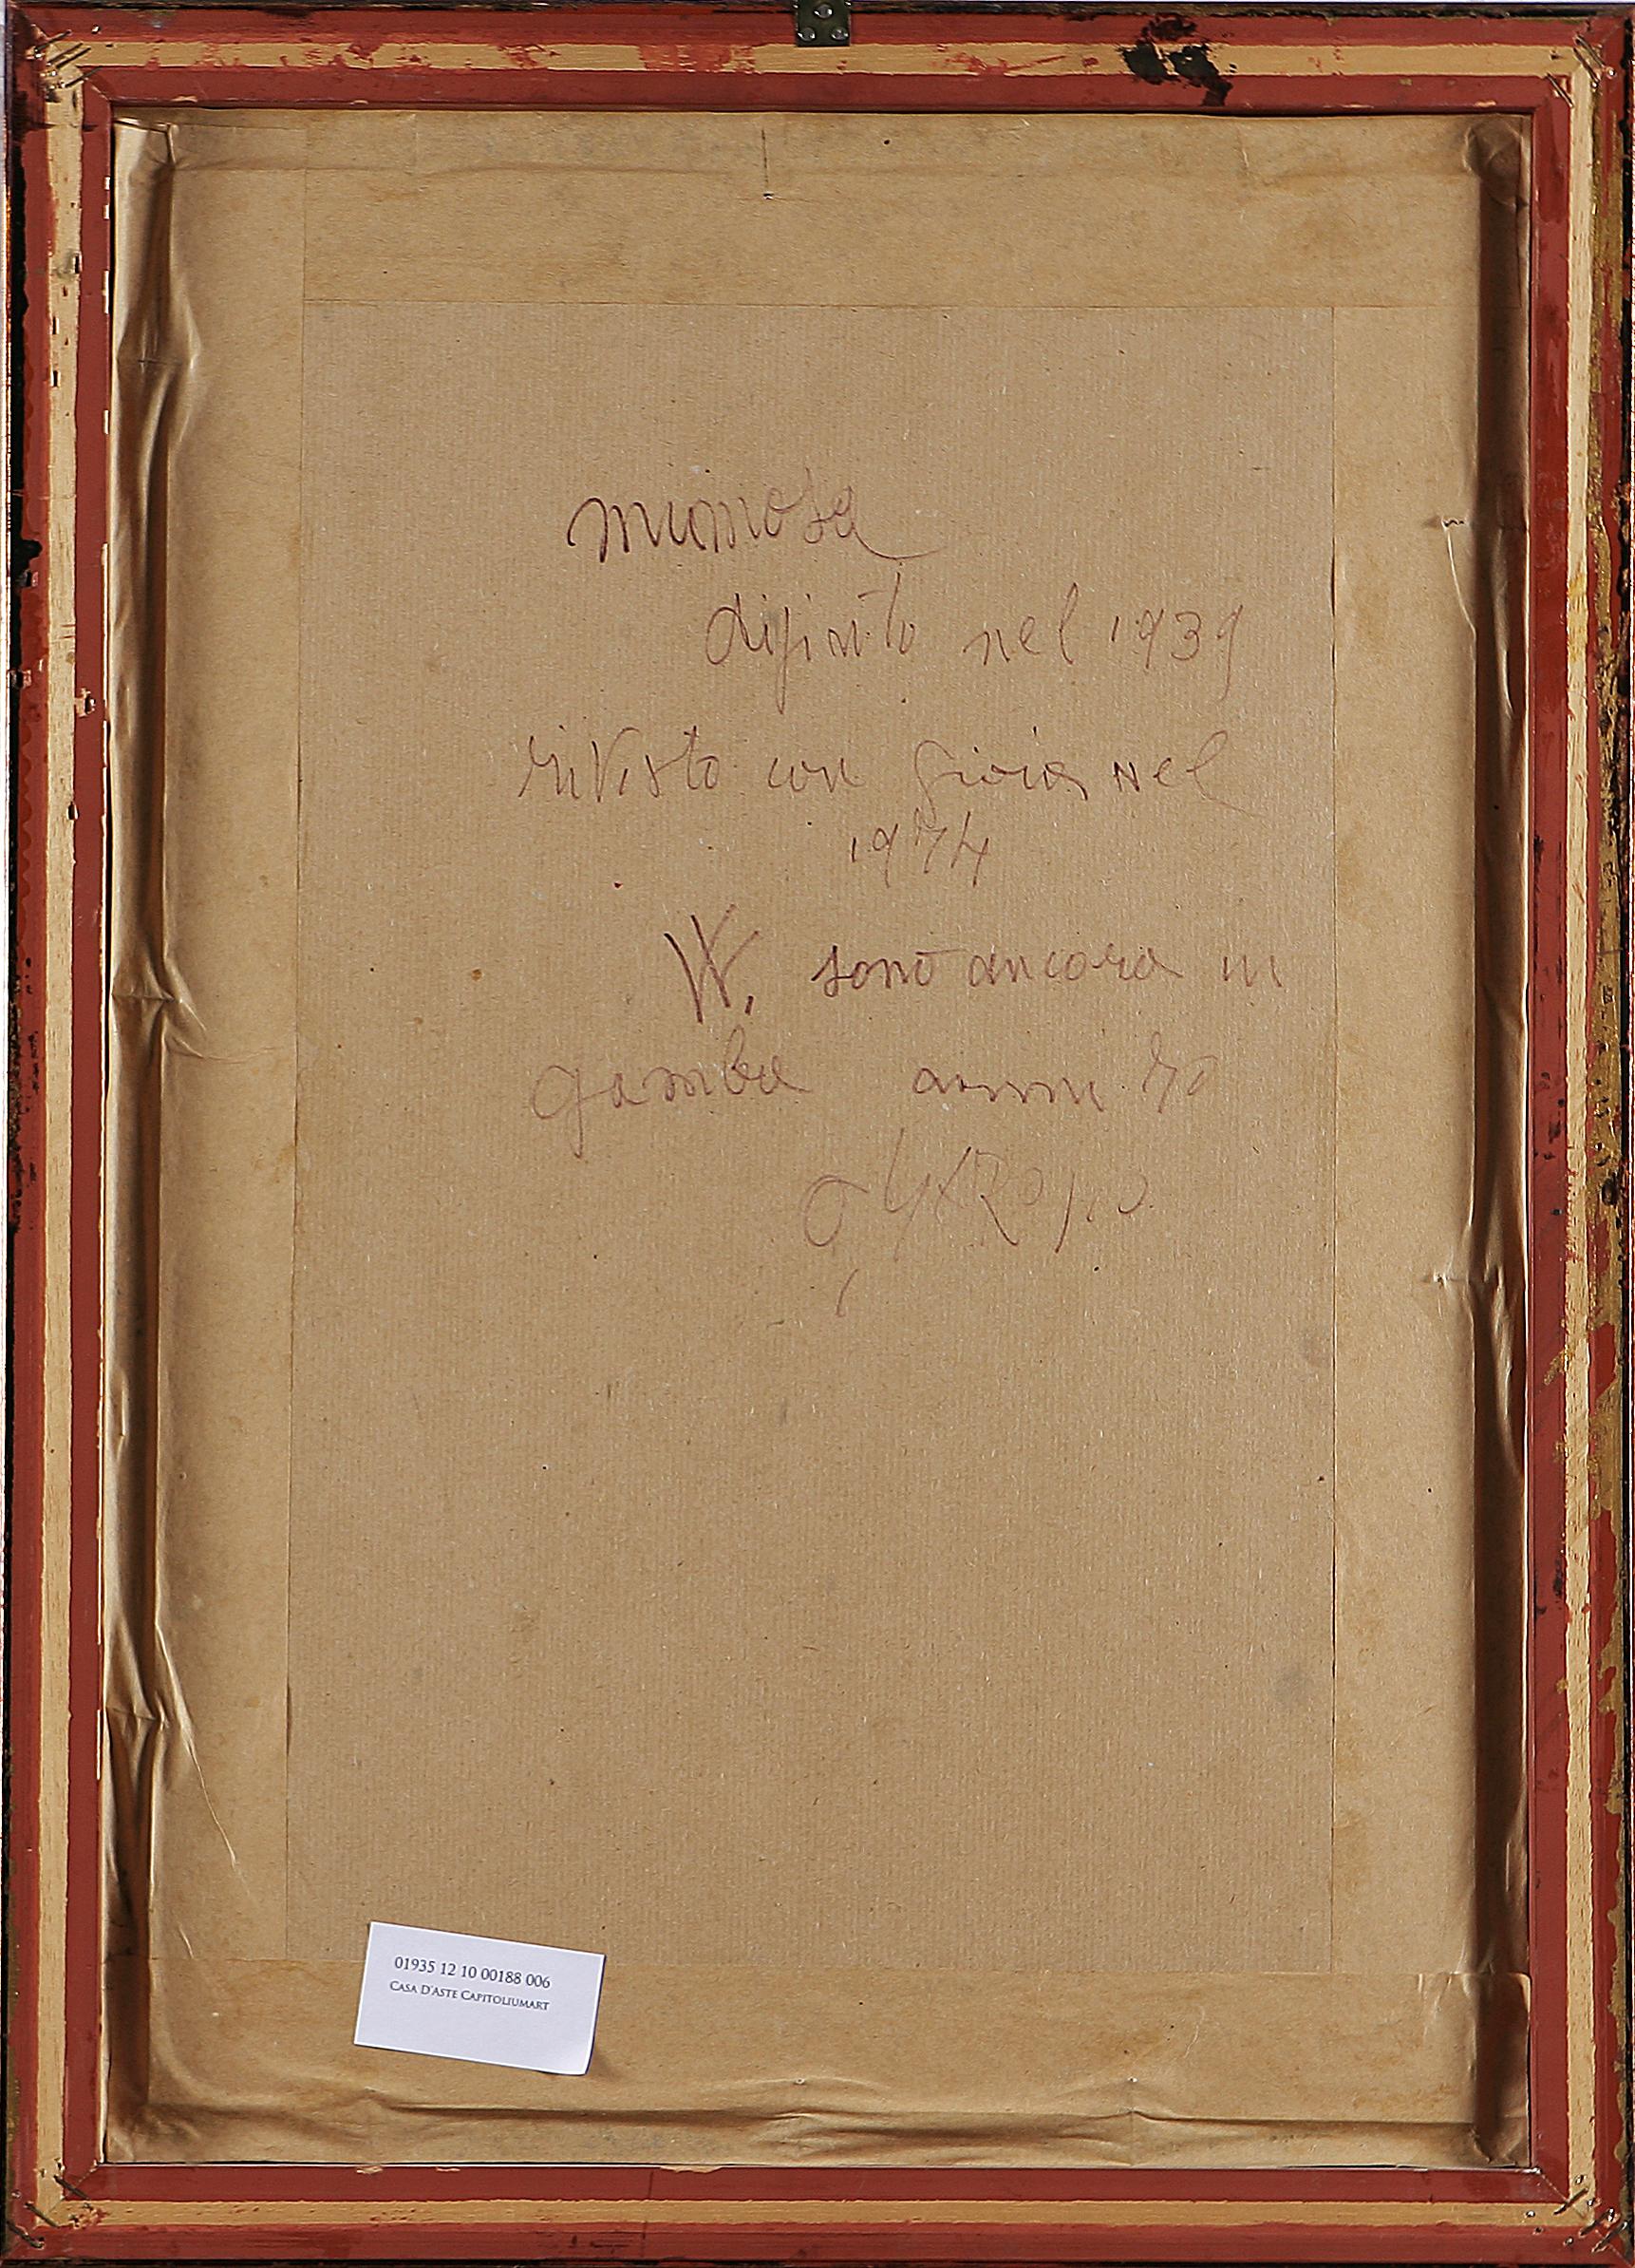 mimosa
dipinto nel 1939
rivisto con gioia nel
1974
W. sono ancora in
gamba anni 70
01935 12 10 00188 006
CASA D'ASTE CAPITOLIUMART